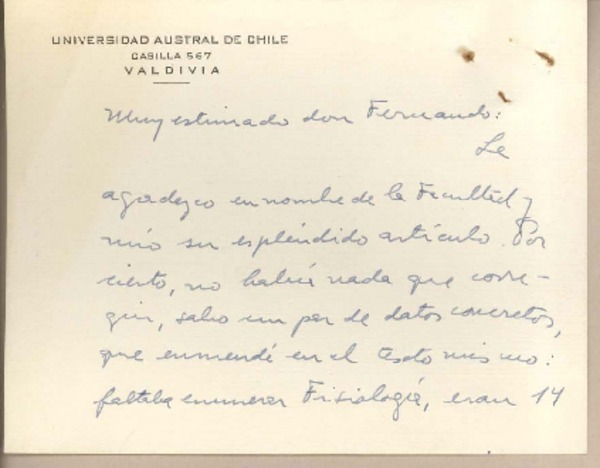 UNIVERSIDAD AUSTRAL DE CHILE
CASILLA 567
VALDIVIA
Muy estimado don Fernando:
Le
agradezco en nombre de la Facultad y
mío su espléndido artículo. Por
cierto, no había nada que corre-
gir, salvo un par de datos concretos,
que enmendé en el texto mismo:
faltaba enumerar Fisiología, eran 14